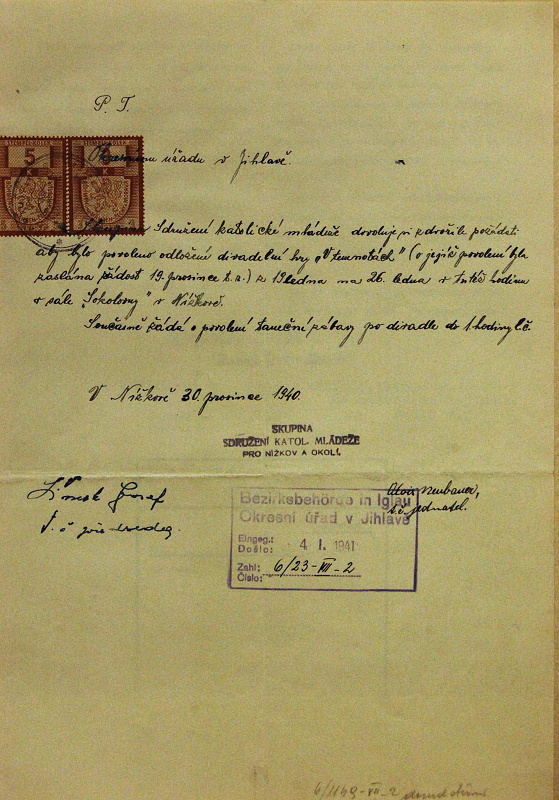 P. T.
Okresnímu úřadu v Jihlavě.
5
K
Skupina Sdružení katolické mládeže dovoluje si zdvořile požádati
aby bylo povoleno odložení divadelní hry „V temnotách" (o jejíž povolení byla
zaslána žádost 19. prosince t. r.) z 19 ledna na 26. ledna v tutéž hodinu
v sále „Sokolovny" v Nížkově.
Současně žádá o povolení taneční zábavy po divadle do 1 hodiny
V Nížkově 30. prosince 1940.
SKUPINA
SDRUŽENÍ KATOL. MLÁDEŽE
PRO NÍŽKOV A OKOLÍ.
Josef
Alois Neubauer,
t. č. jednatel.
Bezirksbehörde in Iglau
Okresní úřad v Jihlavě
Eingeg.:
Došlo: 4 I. 1941
Zahl:
Číslo: 6/23-VII-2